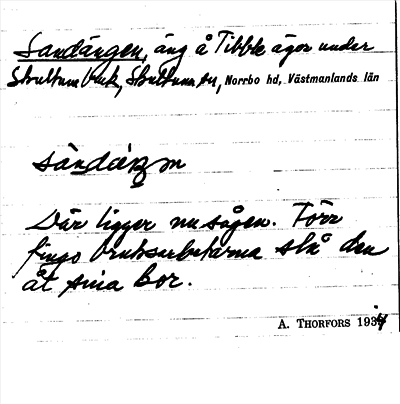 Sandängen, äng å Tibble ägor under
Skultuna bruk, Skultuna sn, Norrbo hd, Västmanlands län
Där ligger nu sågen. Förr
fingo bruksarbetarna slå den
åt sina kor.
A. THORFORS 1934